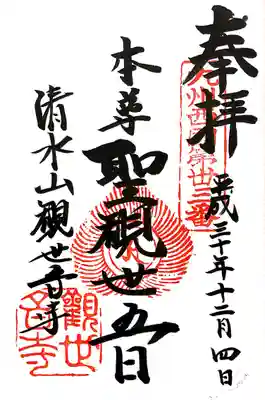 奉拝
九州西国第卅三番
平成三十年十二月四日
本尊
聖観世音
清水山観世音寺
観世音寺